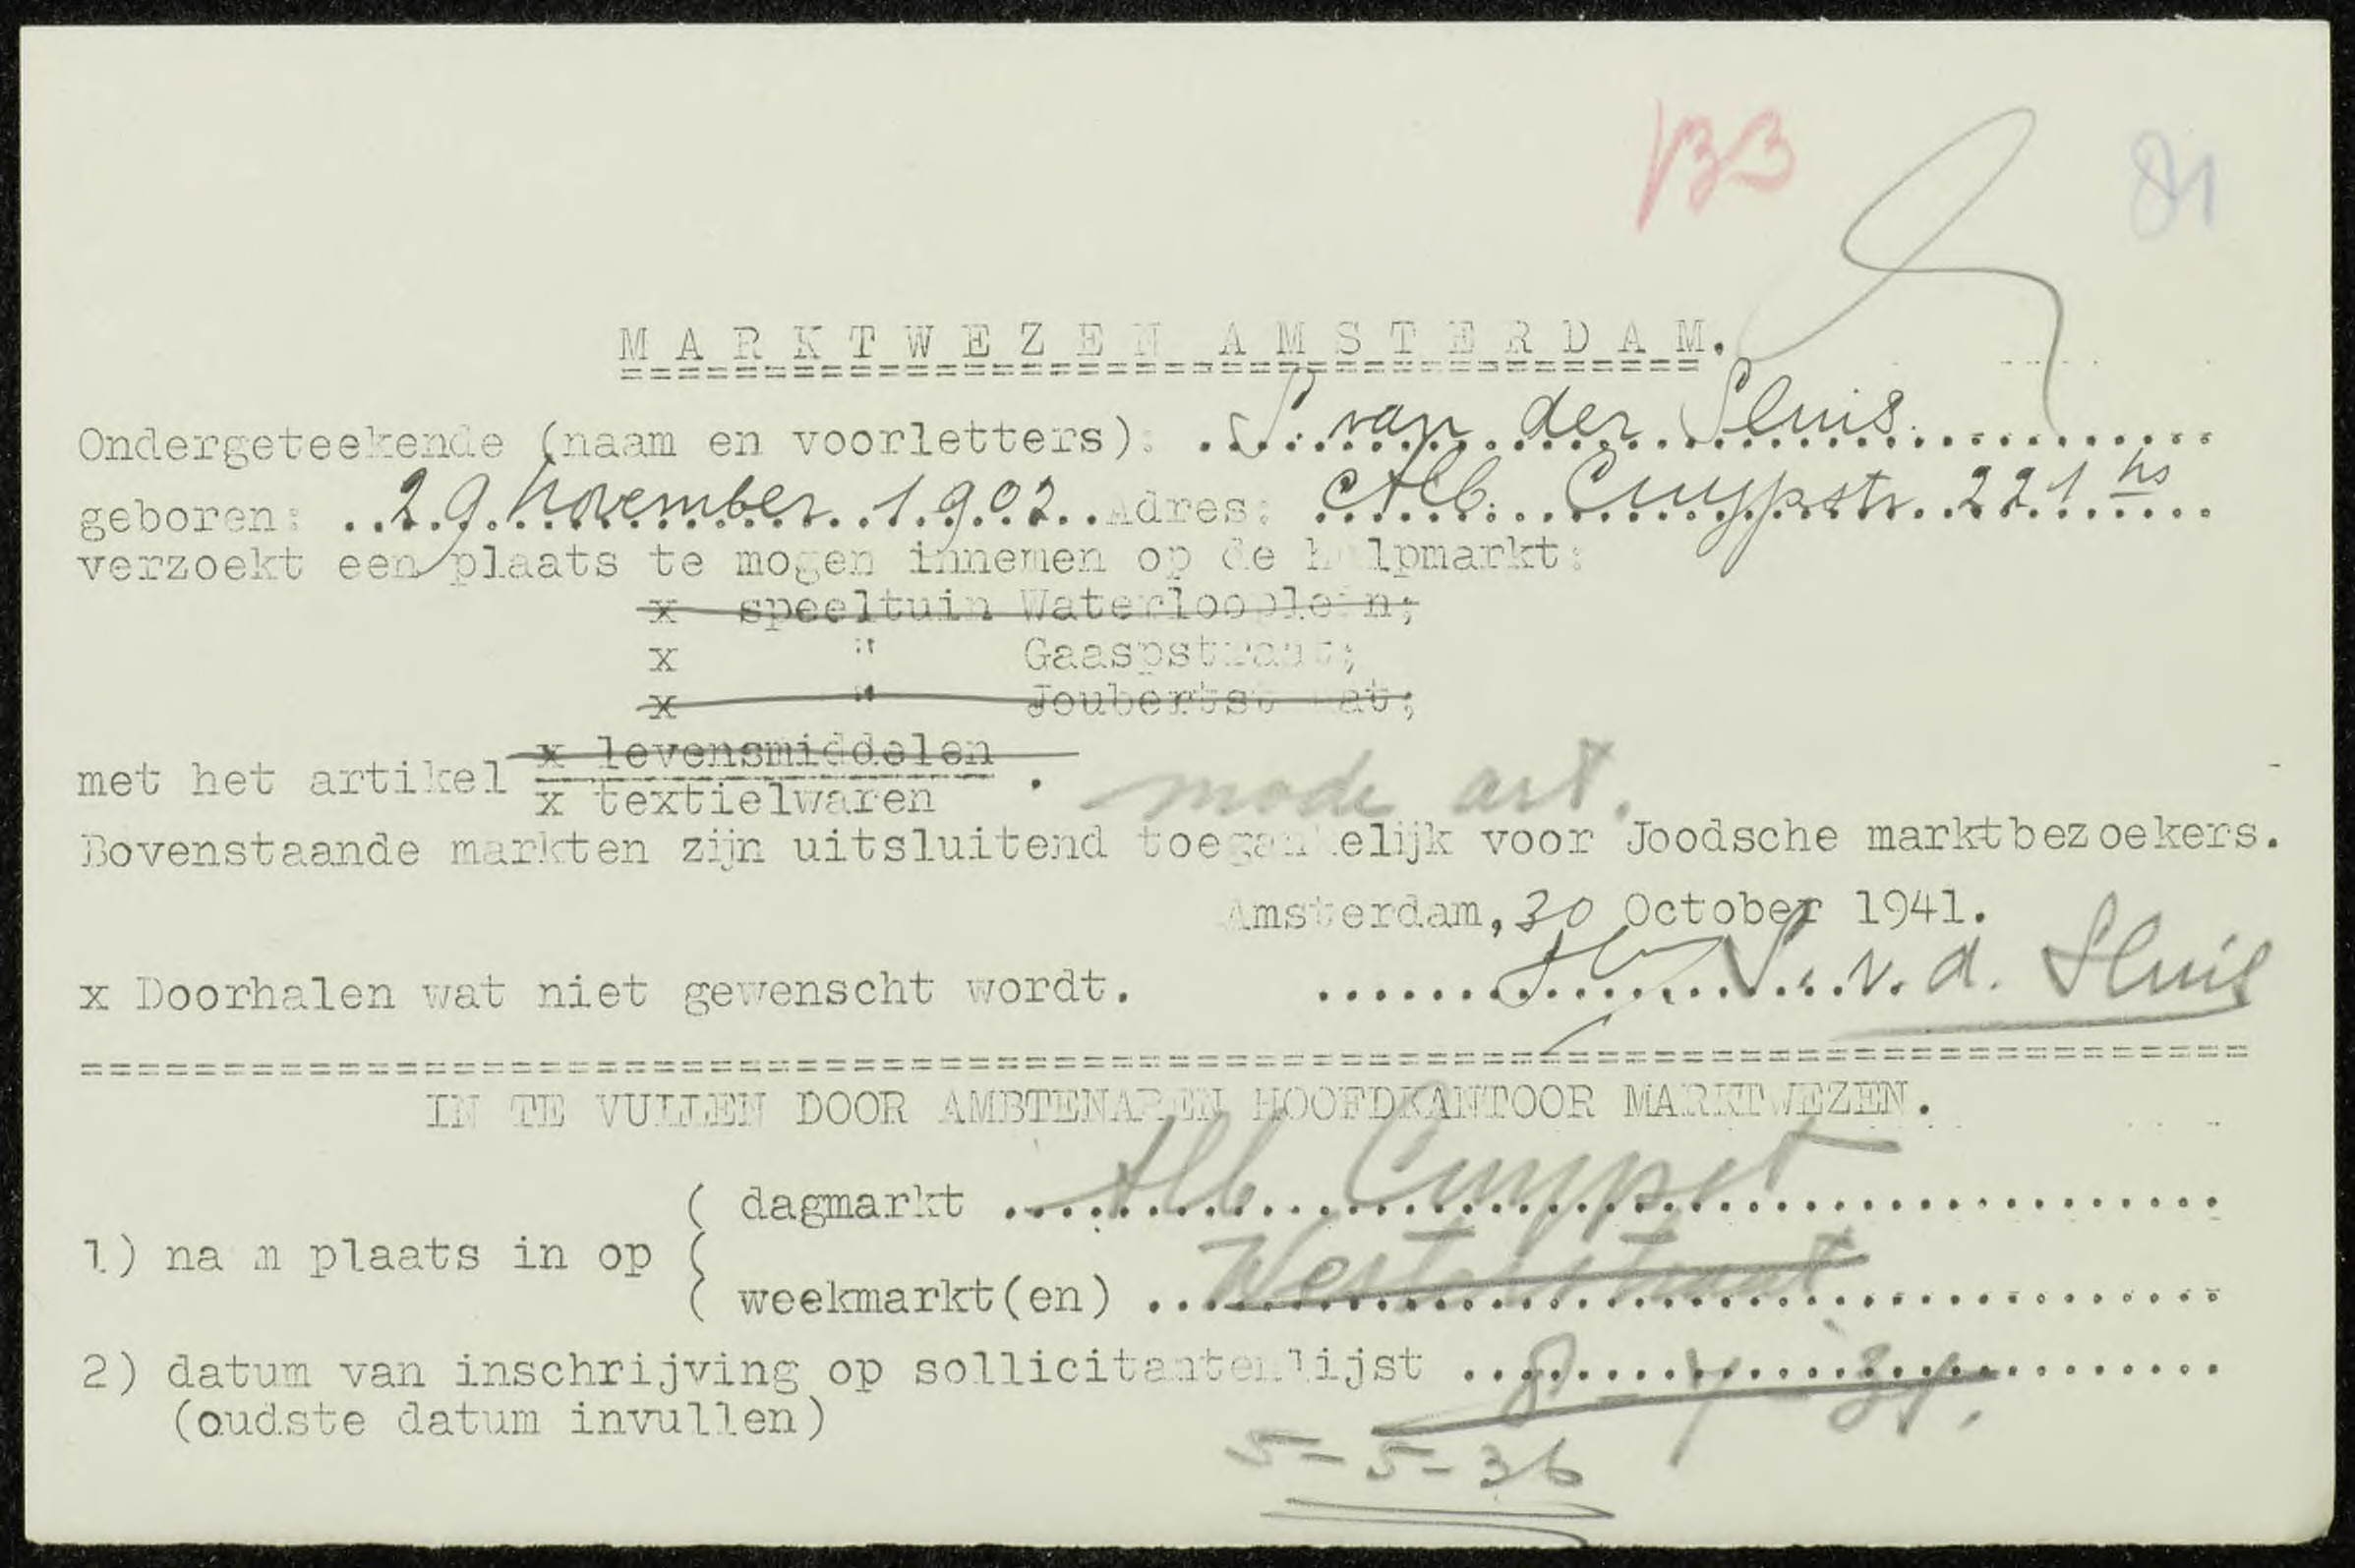 133 81
MARKTWEZEN AMSTERDAM.
Ondergeteekende (naam en voorletters): S. van der Sluis.
geboren: 29 November 1902. Adres: Alb. Cuypstr. 221 hs
verzoekt een plaats te mogen innemen op de hulpmarkt:
x speeltuin Waterlooplein;
x " Gaaspstraat;
x " Joubertstraat;
x levensmiddelen
met het artikel . mode art.
x textielwaren
Bovenstaande markten zijn uitsluitend toegankelijk voor Joodsche marktbezoekers.
Amsterdam, 30 October 1941.
x Doorhalen wat niet gewenscht wordt. S. v. d. Sluis
IN TE VULLEN DOOR AMBTENAREN HOOFDKANTOOR MARKTWEZEN.
( dagmarkt Alb Cuypst
1) nam plaats in op (
( weekmarkt(en) Westerstraat
2) datum van inschrijving op sollicitantenlijst 8-7-39.
(oudste datum invullen)
5-5-36